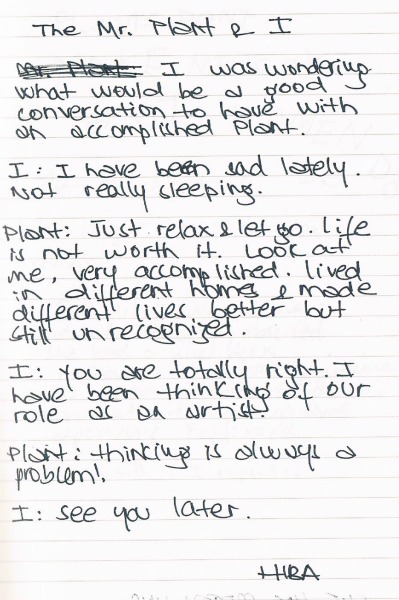 The Mr. Plant & I
Mr. Plant: I was wondering
what would be a good
conversation to have with
an accomplished Plant.
I: I have been sad lately.
Not really sleeping.
Plant: Just relax & let go. Life
is not worth it. Look at
me, very accomplished. lived
in different homes & made
different lives better but
still unrecognized.
I: You are totally right. I
have been thinking of our
role as an artist!
Plant: thinking is always a
problem!
I: see you later.
HIBA